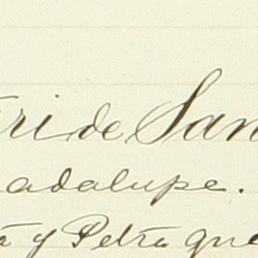 ri de San
adalupe.
y Petra que